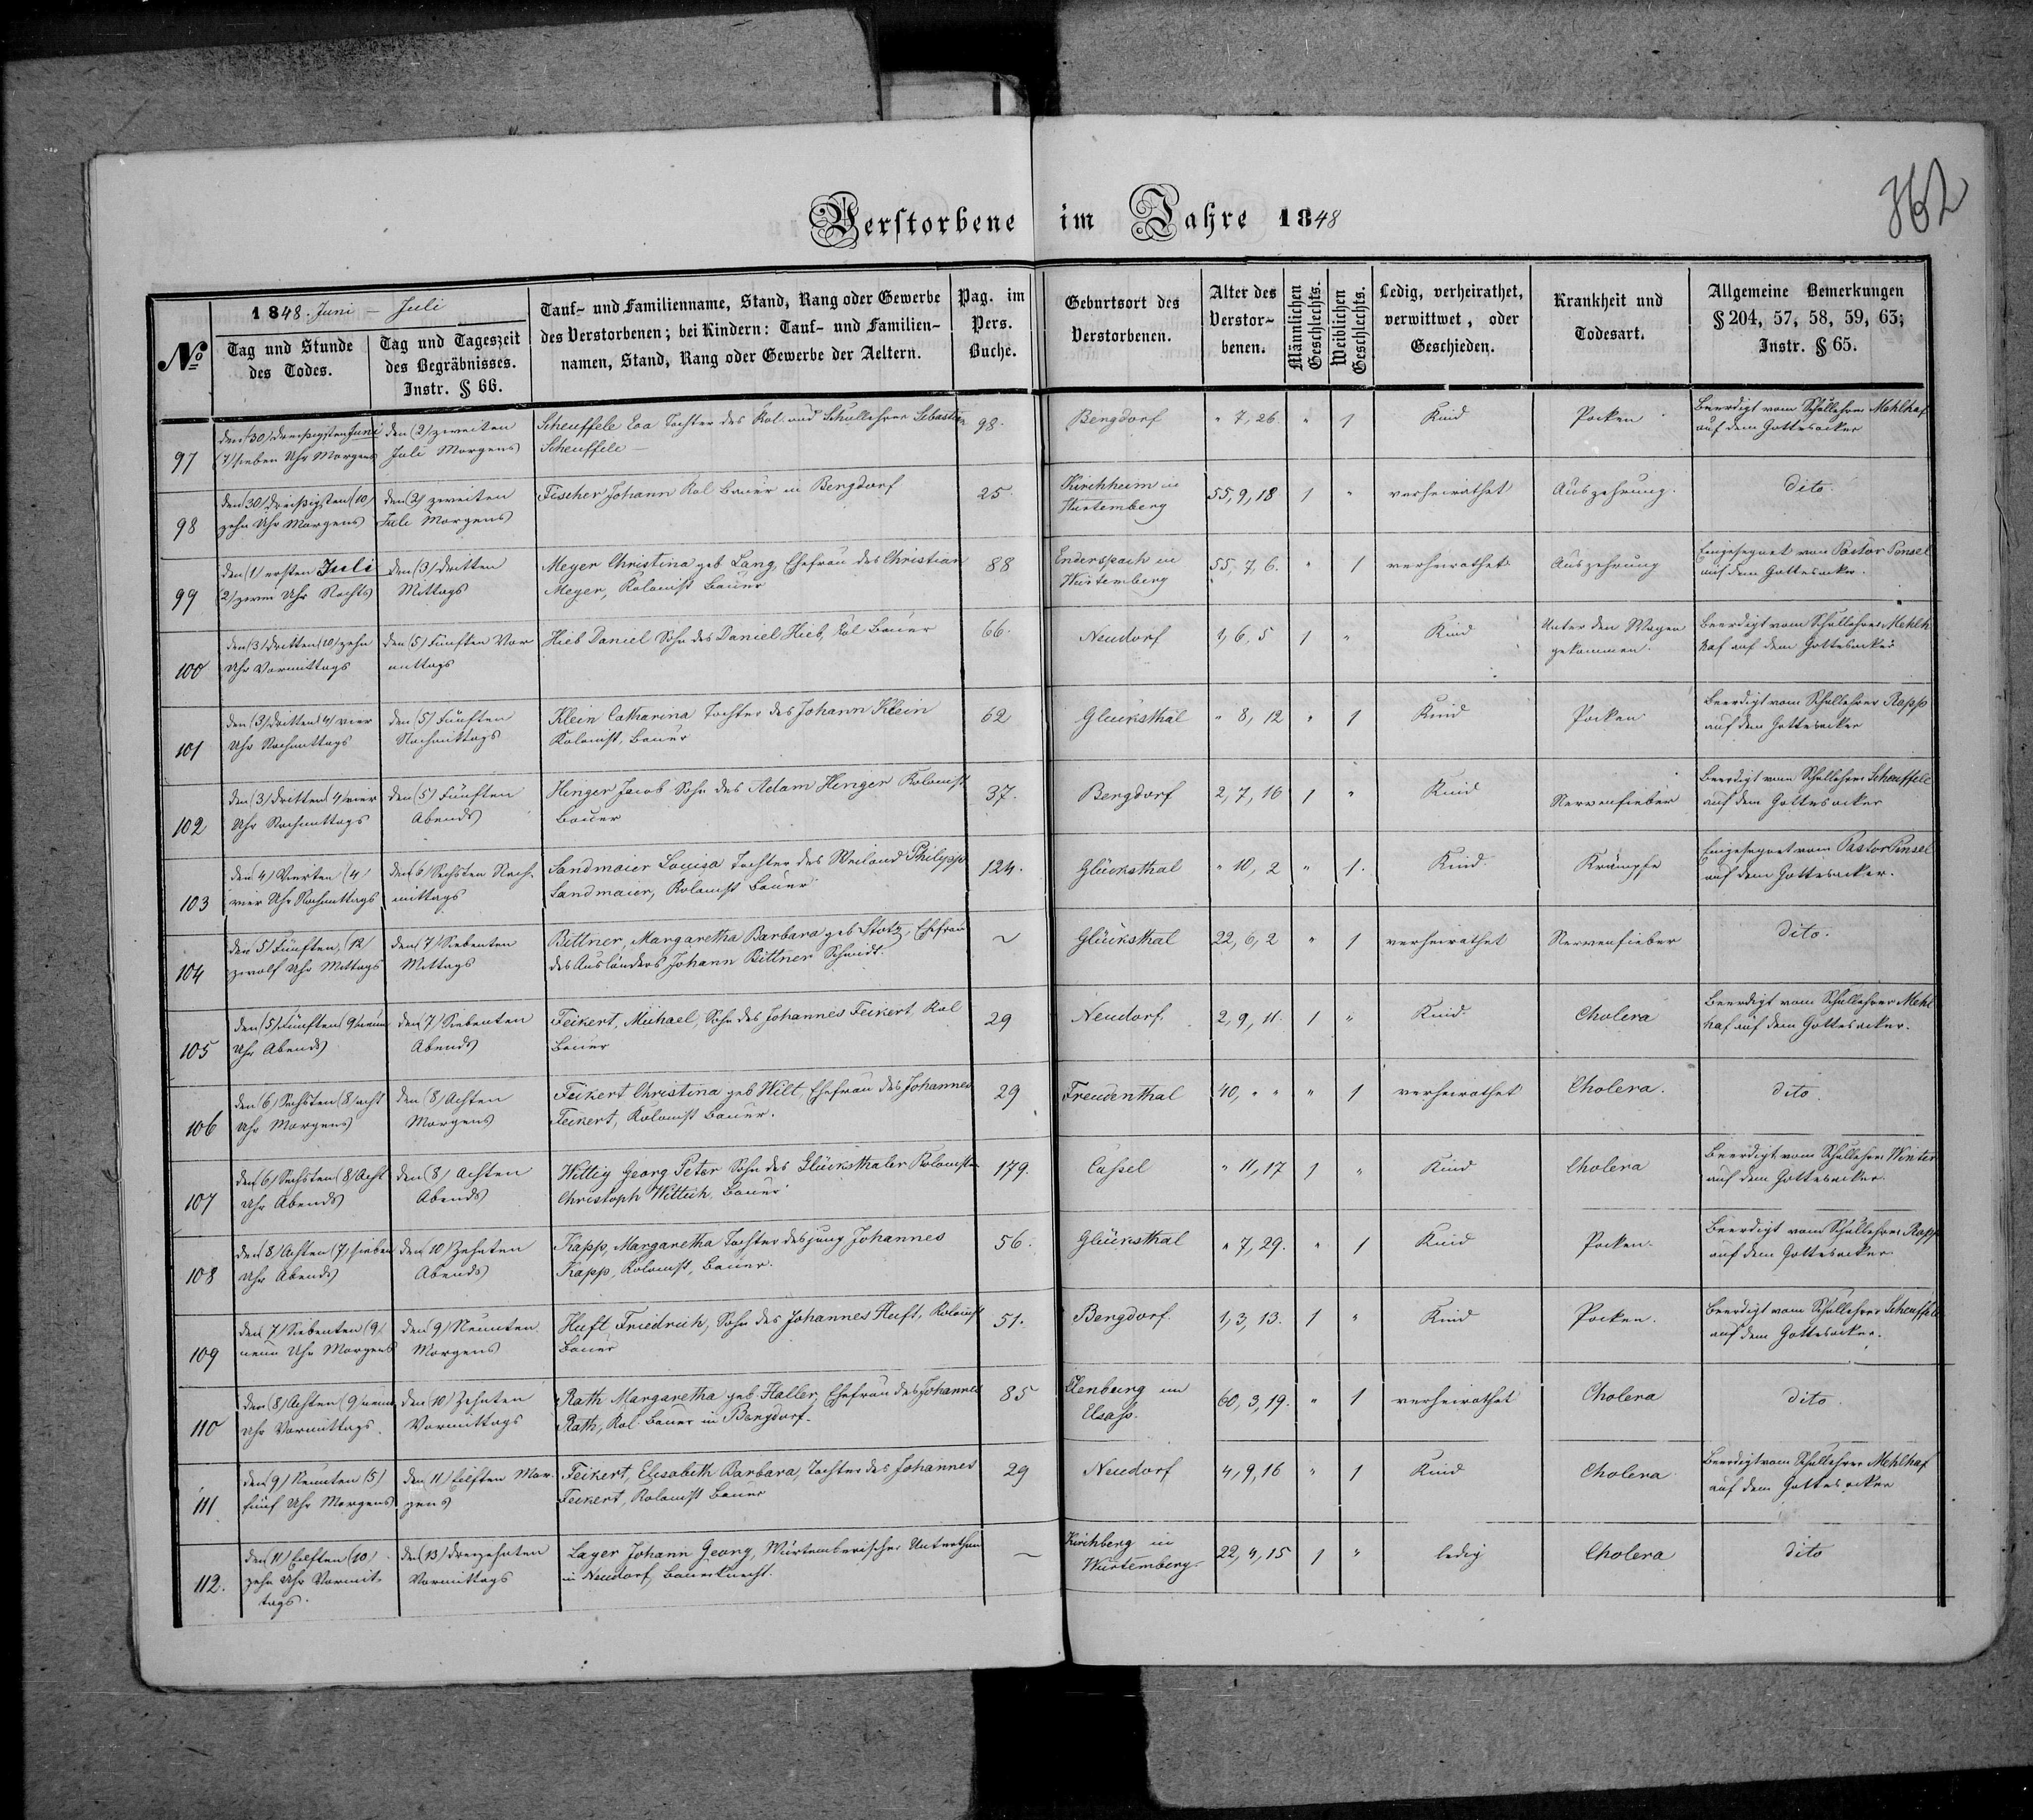 Verstorbene im Jahre 1848
362
№
1848. Juni – Juli
Tag und Stunde des Todes.
Tag und Tageszeit des Begräbnisses. Instr. § 66.
Tauf- und Familienname, Stand, Rang oder Gewerbe
des Verstorbenen; bei Kindern: Tauf- und Familien-
namen, Stand, Rang oder Gewerbe der Aeltern.
Pag. im Pers. Buche.
Geburtsort des Verstorbenen.
Alter des Verstor- benen.
Männlichen Geschlechts.
Weiblichen Geschlechts.
Ledig, verheirathet, verwittwet, oder Geschieden.
Krankheit und Todesart.
Allgemeine Bemerkungen § 204, 57, 58, 59, 63; Instr. § 65.
den (30) dreißigsten Juni den (2) zweiten Scheuffele Eva Tochter des Kol. und Schullehrer Sebastian 98. Bengdorf " 7, 26. " 1 Kind Pocken Beerdigt vom Schullehrer Mehlhaf
97 (7) sieben Uhr Morgens Juli Morgens Scheuffele – auf dem Gottesacker
den (30) dreißigsten (10) den (2) zweiten Fischer Johann Kol Bauer in Bengdorf 25. Kirchheim in 55, 9, 18 1 " verheirathet Auszehrung. dito.
98 zehn Uhr Morgens Juli Morgens Würtemberg
den (1) ersten Juli den (3) dritten Meyer Christina geb Lang, Ehefrau des Christian 88 Enderspach in 55, 7, 6. " 1 verheirathet Auszehrung Eingesegnet von Pastor Pensel
99 (2) zwei Uhr Nachts Mittags Meyer, Kolonist Bauer Würtemberg auf dem Gottesacker.
den (3) dritten (10) zehn den (5) Fünften Vor Hieb Daniel Sohn des Daniel Hieb, Kol Bauer 66. Neudorf 1, 6, 5 1 " Kind Unter den Wagen Beerdigt vom Schullehrer Mehlh
100 Uhr Vormittags mittags gekommen. haf auf dem Gottesacker
den (3) dritten (4) vier den (5) Fünften Klein Catharina Tochter des Johann Klein 62 Glücksthal " 8, 12 " 1 Kind Pocken Beerdigt vom Schullehrer Rapp
101 Uhr Nachmittags Nachmittags Kolonist, Bauer auf dem Gottesacker
den (3) dritten (4) vier den (5) Fünften Hinger Jacob Sohn des Adam Hinger Kolonist 37. Bergdorf 2, 7, 16 1 " Kind Nervenfieber Beerdigt vom Schullehrer Scheuffele
102 Uhr Nachmittags Abends Bauer auf dem Gottesacker
den 4) Vierten (4) den (6) Sechsten Nach- Sandmaier Louisa Tochter des Weiland Philipp 124. Glücksthal " 10, 2 " 1. Kind Krämpfe Eingesegnet vom Pastor Pensel
103 vier Uhr Nachmittags mittags Sandmaier, Kolonist Bauer auf dem Gottesacker.
den 5) Fünften, (12) den (7) Siebenten Bittner, Margaretha Barbara geb Stotz, Ehefrau ~ Glücksthal 22, 6, 2 " 1 verheirathet Nervenfieber dito.
104 zwölf Uhr Mittags Mittags des Ausländers Johann Bittner Schmidt.
den (5) Fünften (9) neun den (7) Siebenten Feikert, Michael, Sohn des Johannes Feikert, Kol 29 Neudorf. 2, 9, 11. 1 " Kind. Cholera Beerdigt vom Schullehrer Mehl
105 Uhr Abends Abends Bauer haf auf dem Gottesacker.
den (6) Sechsten (8) acht den (8) Achten Feikert Christina geb Wilt, Ehefrau des Johannes 29 Freudenthal 40, " " " 1 verheirathet Cholera. dito.
106 Uhr Morgens Morgens Feikert, Kolonist Bauer.
den (6) Sechsten (8) Acht den (8) Achten Wittig Georg Peter Sohn des Glücksthaler Kolonisten 179. Cassel " 11, 17 1 " Kind Cholera Beerdigt vom Schullehrer Winter
107 Uhr Abends Abends Christoph Wittich, Bauer auf dem Gottesacker.
den (8) Achten (7) sieben den (10) Zehnten Kapp, Margaretha Tochter des jung Johannes 56. Glücksthal " 7, 29. " 1 Kind Pocken. Beerdigt vom Schullehrer Rapp
108 Uhr Abends Abends Kapp, Kolonist, Bauer. auf dem Gottesacker
den 7) Siebenten (9) den (9) Neunten Huft Friedrich, Sohn des Johannes Huft, Kolonist 51. Bergdorf. 1, 3, 13. 1 " Kind Pocken. Beerdigt vom Schullehrer Scheuffele
109 neun Uhr Morgens Morgens Bauer auf dem Gottesacker.
den (8) Achten (9) neun den (10) Zehnten Rath Margaretha geb Haller, Ehefrau des Johannes 85 im 60, 3, 19. " 1 verheirathet Cholera dito.
110 Uhr Vormittags. Vormittags Rath, Kol. Bauer in Bengdorf. Elsaß.
den (9) Neunten (5) den (11) Eilften Mor- Feikert, Elisabeth Barbara, Tochter des Johannes 29 Neudorf 4, 9, 16 " 1 Kind Cholera Beerdigt vom Schullehrer Mehlhaf
111 fünf Uhr Morgens gens Feikert, Kolonist Bauer auf dem Gottesacker
den (11) Eilften (10) den (13) dreizehnten Layer Johann Georg, Würtembergischer Unterthan ~ Kirchberg in 22, 4, 15 1 " ledig Cholera dito
112. zehn Uhr Vormit- Vormittags in Neudorf, Bauerknecht. Würtemberg
tags.